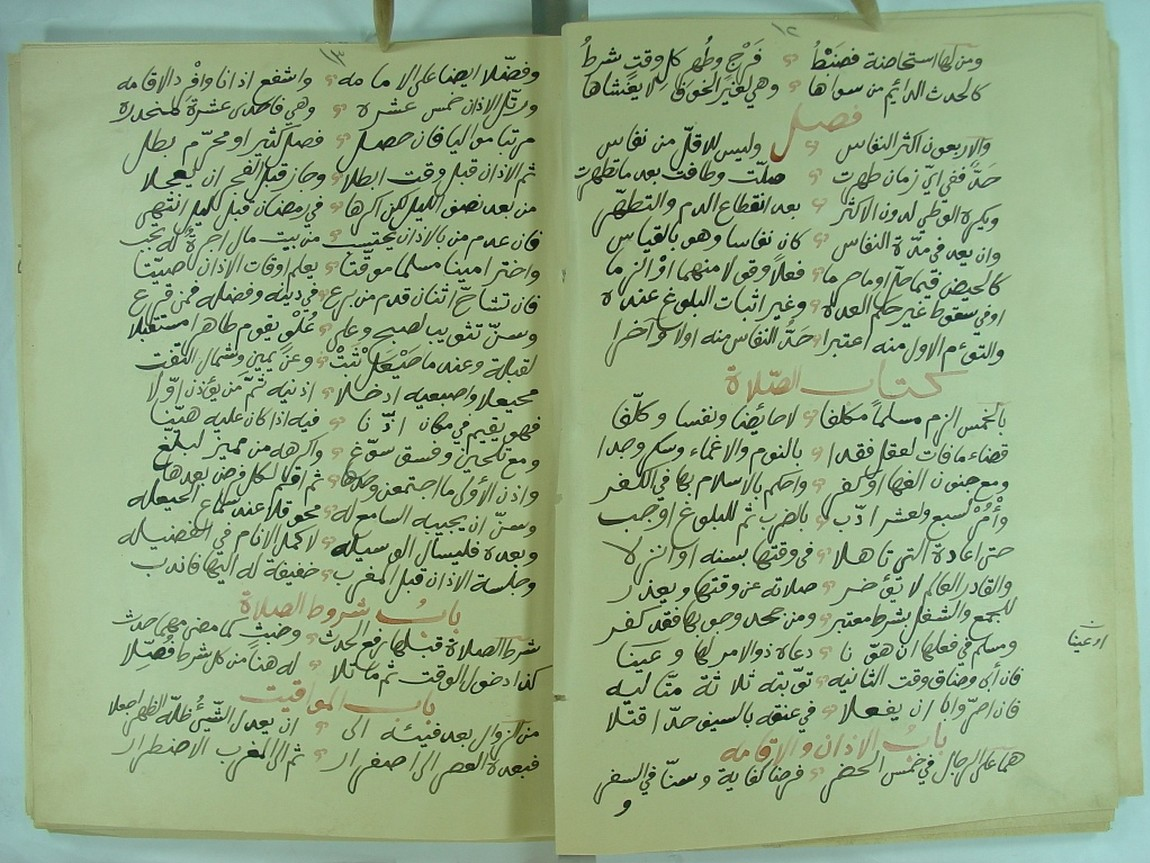 ١٢
ومن لها استحاضة فضبط فرج وطهر كل وقت شرط
كالحدث الدائم من سواها وهي لغير الخوف لا يغشاها
فصل
والاربعون اكثر النفاس وليس للاقل من نفاس
حد ففي اي زمان طهرت صلت وطافت بعد ما تطهرت
ويكره الوطي لدون الاكثر بعد انقطاع الدم والتطهر
وان يعد في مدة النفاس كان نفاسا وهو بالقياس
كالحيض فيما حل او ما حرما فعلا وقولا منهما او الزما
او في سقوط غير حكم العدة وغير اثبات البلوغ عنده
والتوءم الاول منه اعتبرا حد النفاس منه اولا وآخرا
كتاب الصلاة
بالخمس الزم مسلماً مكلفا لا حائضا ونفسا وكلفا
قضاء ما فات لعقل فقدا بالنوم والاغماء وسكر وجدا
ومع جنون الغها او كفر واحكم بالاسلام بها في الكفر
وأمر لسبع ولعشر ادب بالضرب ثم للبلوغ اوجب
حتى اعادة التي تاهلا في وقتها بسنه او انزلا
والقادر العالم لا يؤخر صلاته عن وقتها ويعذر
للجمع والشغل بشرط معتبر ومن جحد وجوبها فقد كفر
ومسلم في فعلها ان هونا دعاه ذو الامر لها وعينا
او عينا
فان أبى وضاق وقت الثانيه توبته ثلاثة متاليه
فان اصر وابا ان يفعلا في عنقه بالسيف حدا قتلا
باب الاذان والاقامه
هما على الرجال في خمس الحضر فرضا كفاية وسنا في السفر
و
١٣
وفضلا ايضا على الامامه واشفع اذانا وافرد الاقامه
ورتل الاذان خمس عشره وهي فاحدى عشرة منحدره
مرتبا مواليا فان حصل فصل كثير او محرم بطل
ثم الاذان قبل وقت ابطلا وجاز قبل الفجر ان يعجلا
من بعد نصف الليل لكن اكرها في رمضان قبل الليل انتهى
فان عدم من بالاذان يحتسب من بيت مال اجرة له يجب
واختر امينا مسلما موقتا يعلم اوقات الاذان صيتا
فان تشاح اثنان قدم من برع في دينه وفضله فمن قرع
وسن تثويب لصبح وعلى علو يقوم طاهرا مستقبلا
لقبلة وعند ما حيعل ثنت وعن يمين وشمال التفت
محيعلا واصبعيه ادخلا اذنيه ثم من يؤذن اولا
فهو يقيم في مكان اذنا فيه اذا كان عليه هينا
ومع تلحين وفسق سوغ واكرهه من مميز لبلغ
واذن الأولى ما اجتمعن وحدها ثم اقم لكل فرض بعدها
وسن ان يجيبه السامع له محوقلا عند سماع الحيعله
وبعده فليسال الوسيله لاكمل الانام في الفضيله
وجلسة الاذان قبل المغرب خفيفة له اليها فاندب
باب شروط الصلاة
شرط الصلاة قبلها رفع الحدث وخبث كما مضى مهما حدث
كذا دخول الوقت ثم ما تلا له هنا من كل شرط فصلا
باب المواقيت
من الزوال بعد فيئه الى ان يعدل الشيء ظله الظهر اجعلا
فبعده العصر الى اصفرار ثم الى المغرب الاضطرار